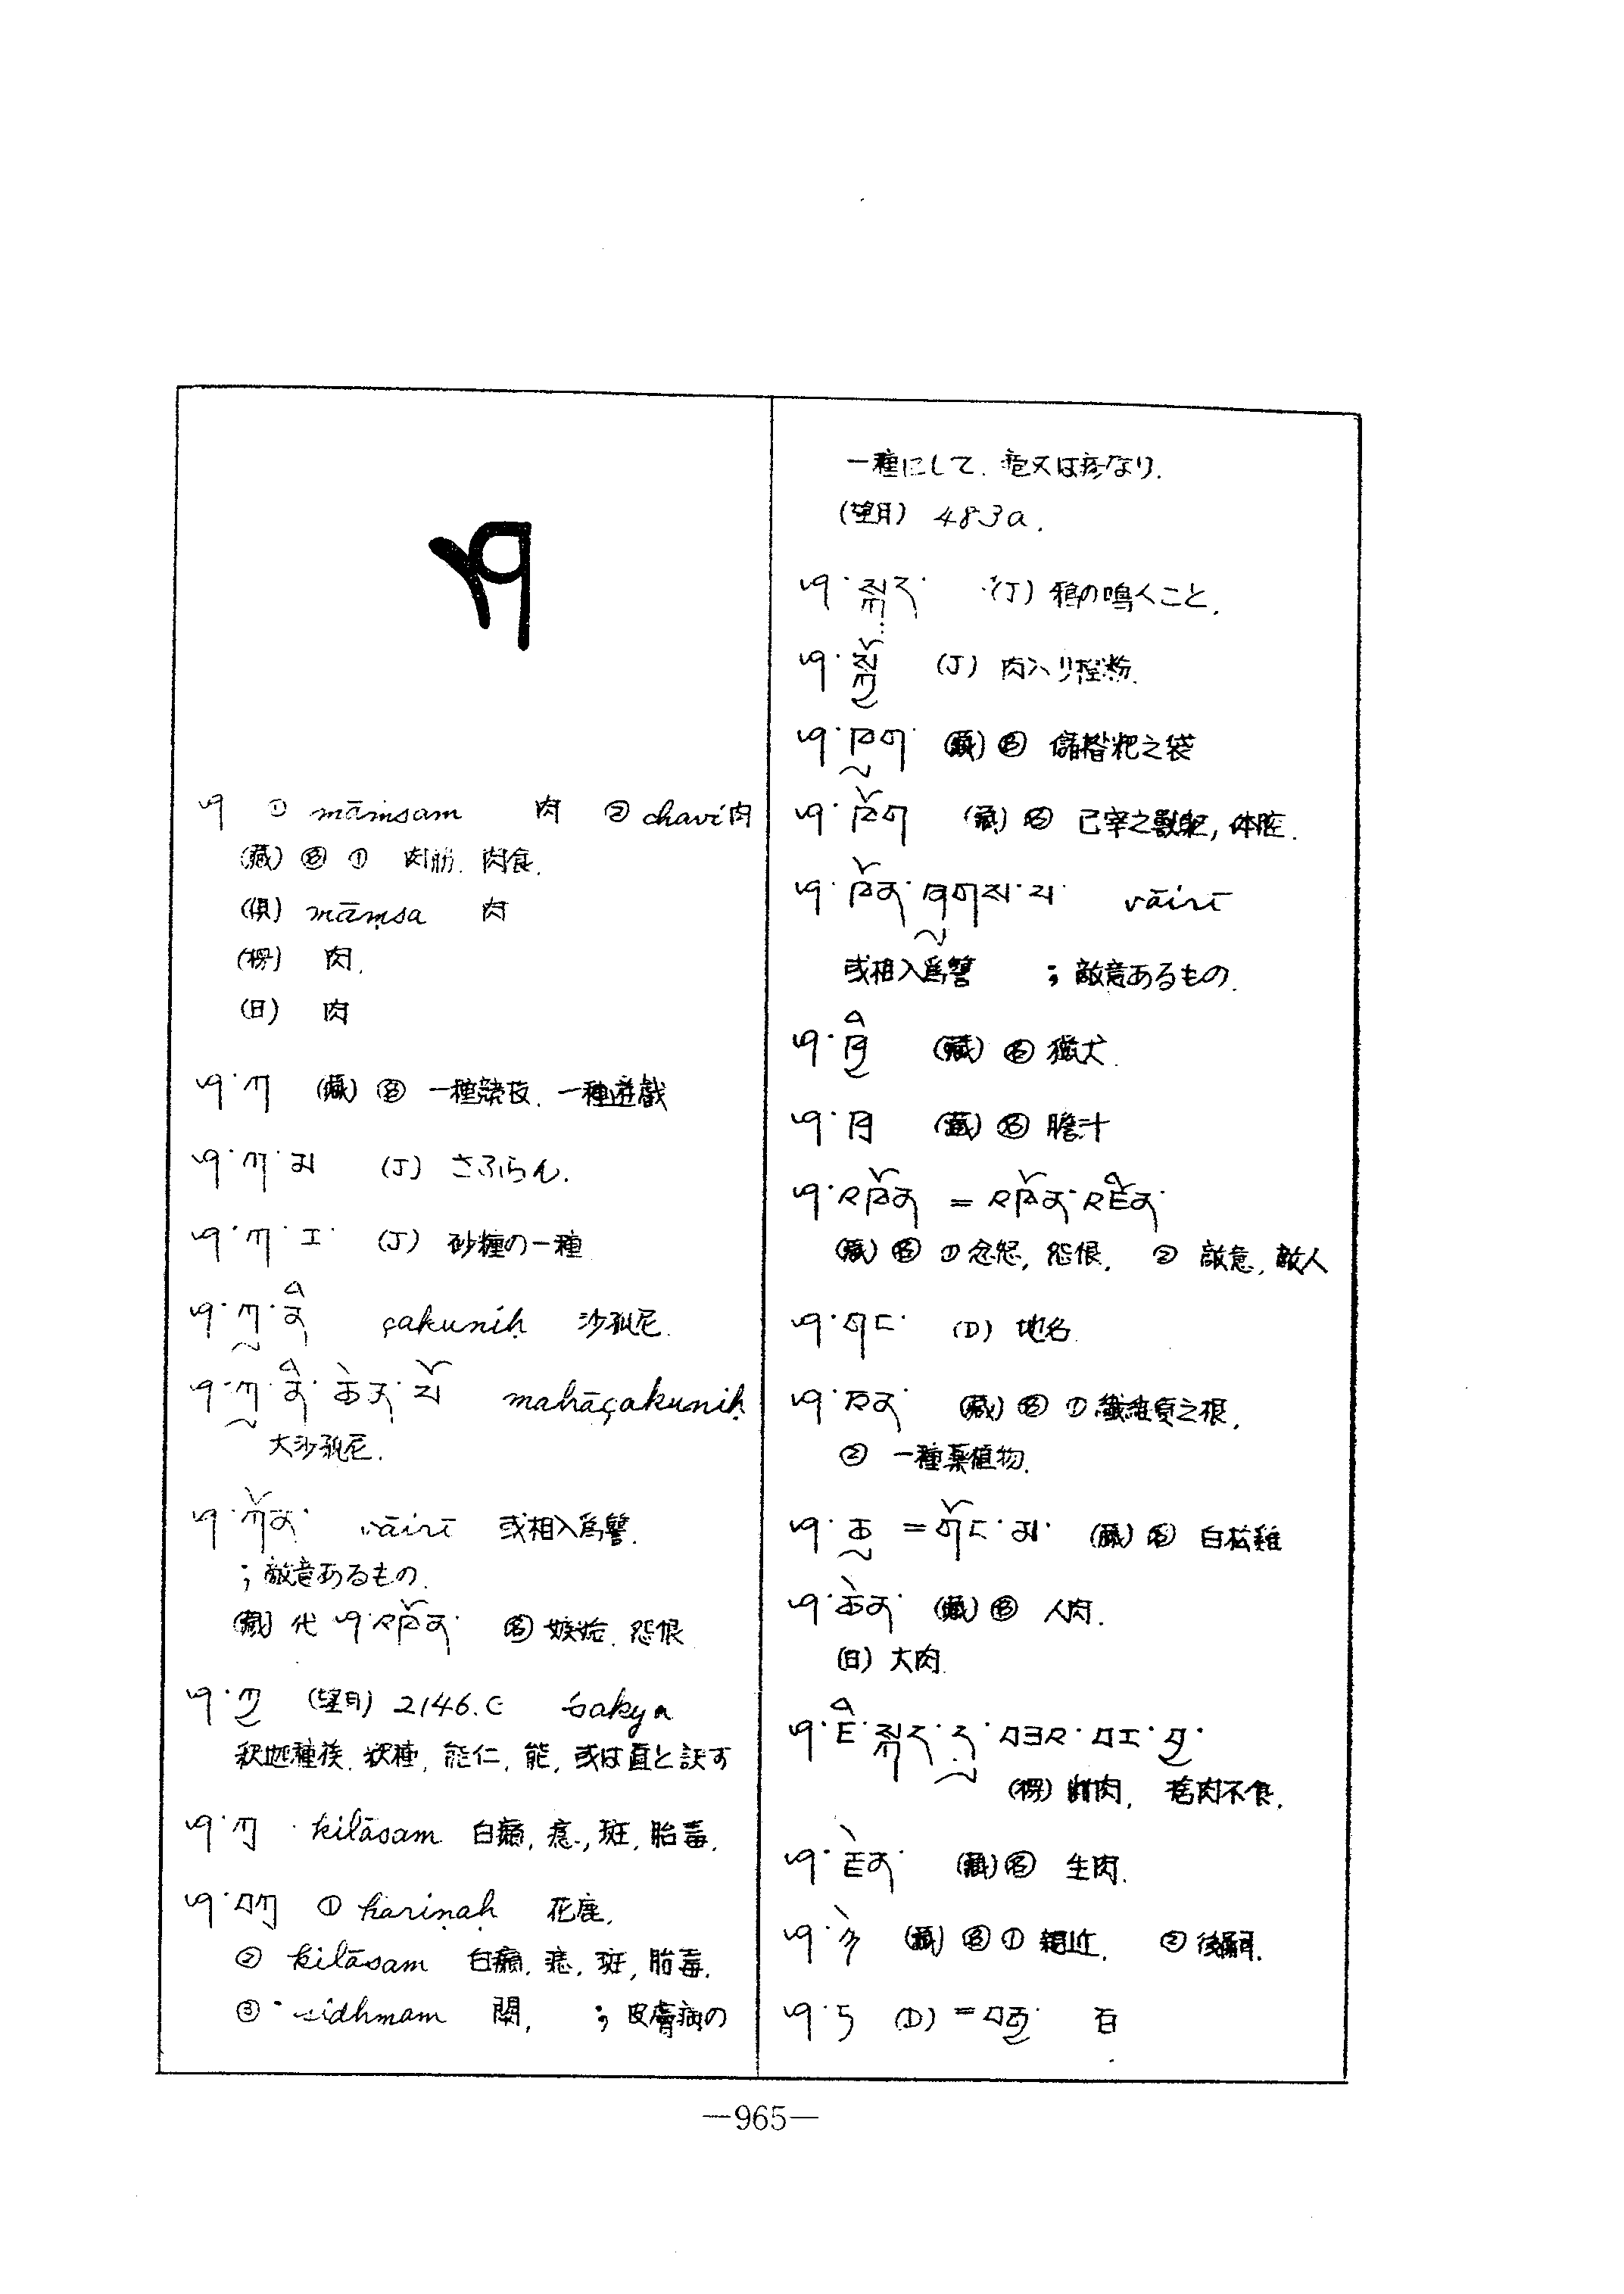 ཤ
ཤ ① māṁsam 肉 ② chavi 肉
(蔵) 名 ① 肉筋. 肉食.
(倶) māṃsa 肉
(楞) 肉.
(日) 肉
ཤ་ཀ (蔵) 名 一種競技. 一種遊戯
ཤ་ཀ་མ (J) さふらん.
ཤ་ཀ་ར་ (J) 砂糖の一種
ཤ་ཀུ་ནི çakuniḥ 沙狐尼.
ཤ་ཀུ་ནི་ཆེན་པོ mahāçakuniḥ
大沙狐尼.
ཤ་ཀོན་ vāirī 或相入為讐.
; 敵意あるもの.
(蔵) 代 ཤ་འཁོན་ 名 嫉妬. 怨恨
ཤ་ཀྱ (望月) 2146.c śakya
釈迦種後. 釈種, 能仁, 能, 或は直と訳す
ཤ་ཀྲ kilāsam 白癩, 痣, 斑, 胎毒.
ཤ་བཀྲ ① hariṇaḥ 花鹿.
② kilāsam 白癩. 痣. 斑, 胎毒.
③ sidhmam ; 皮膚病の
一種にして. 又は なり.
(望月) 483a.
ཤ་སྐད་ (J) 鴉の鳴くこと.
ཤ་སྐྱོ (J) 肉入り
ཤ་ཁུག་ (蔵) 名 儲糌粑之袋
ཤ་ཁོག (蔵) 名 已宰之獣躯, 体腔.
ཤ་ཁོན་ཞུགས་པ་ vāirī
或相入為讐 ; 敵意あるもの.
ཤ་ཁྱི (蔵) 名 猟犬.
ཤ་ཁྲ (蔵) 名 膽汁
ཤ་འཁོན = འཁོན་འཛིན་
(蔵) 名 ① 忿怒, 怨恨. ② 敵意, 敵人
ཤ་གང་ (D) 地名.
ཤ་ཆན་ (蔵) 名 ① 繊維質之根.
② 一種薬植物.
ཤ་ཆུ = གོང་མ་ (蔵) 名 白松雞
ཤ་ཆེན་ (蔵) 名 人肉.
(日) 大肉.
ཤ་ཇི་སྐད་དུ་བཟའ་བར་བྱ་
(楞) 断肉, 捨肉不食.
ཤ་རྗེན་ (蔵) 名 生肉.
ཤ་ཉེ (蔵) 名 ① 親近. ② 後嗣.
ཤ་ཏ (D) = བརྒྱ་ 百
—965—